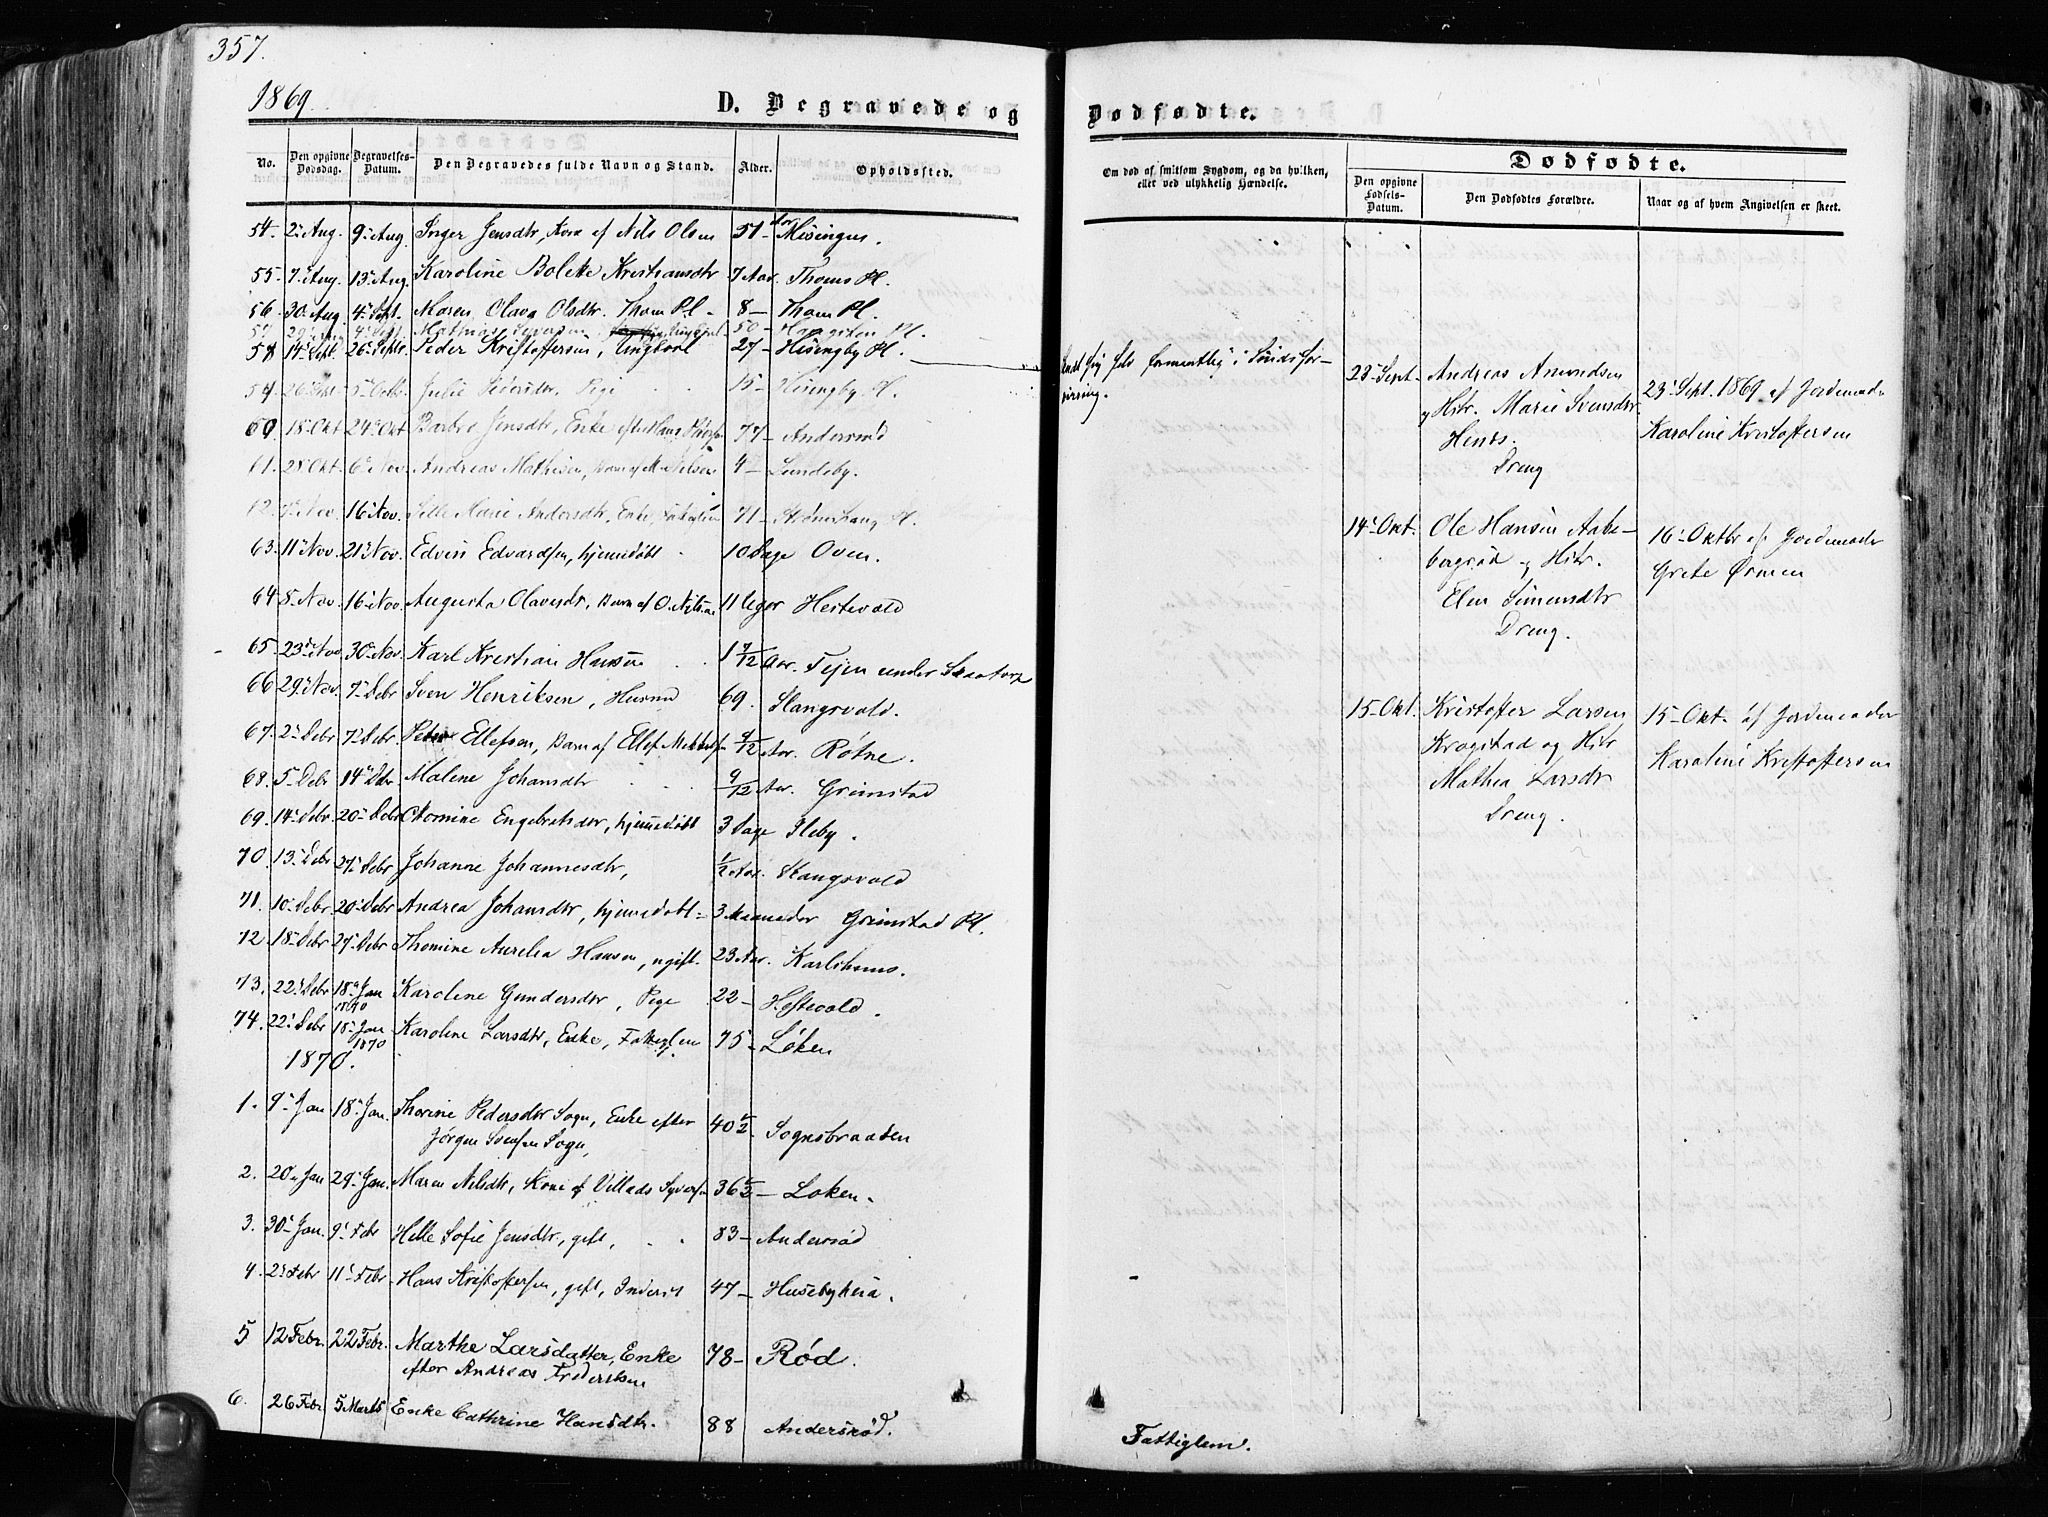 357.
1869.
D. Begravede og
Dødfødte.
No. Den opgivne Dødsdag. Begravelses-Datum. Den Begravedes fulde Navn og Stand. Alder. Opholdssted.
Om død af smitsom Sygdom, og da hvilken, eller ved ulykkelig Hændelse.
Dødfødte.
Den opgivne Fødsels-Datum. Den Dødfødtes Forældre. Naar og af hvem Angivelsen er skeet.
54. 2 Aug. 9 Aug. Inger Jensdtr, Kone af Nils Olsen 51 Aar Misingen.
55. 7 Aug. 13 Aug. Karoline Kristiansdtr 7 Aar. Thoms Pl.
56 30 Aug 4 Sept. Maren Olava Olsdtr. Thom Pl - 8 - Thom Pl.
57 29 4 Sept. Mathias 50 - Pl.
58 14 Sept. 26 Septr. Peder Kristoffersen, 27 - Hisingby Pl.
59 26 Sept 5 Octbr. Julie Pedersdtr. Pige 15 - Hisingby Pl.
60. 18 Okt 24 Okt Jensdtr, Enke efter Hans 77 - Andersrød
61. 28 Okt. 6 Nov. Andreas Mathisen, Barn af M. Nilsen 4 - Sundby.
62. Nov. 16 Nov. Marie Andersdtr, Enke, Fattiglem 71 - Pl.
63. 11 Nov. 21 Nov. Edvin Edvardsen, hjemmedøbt 10 Dage Oven.
64 8 Nov. 16 Nov. Augusta Olavesdtr, Barn af O. Nilsen 11 Uger Hestevold
65. 23 Nov 30 Nov. Karl Kristian Hansen 1 7/12 Aar. Tejen under Skaatorp
66 29 Nov. 7 Debr Sven Henriksen, Husmd 69. Slangsvold.
67. 2 Debr 7 Debr Ellefsen, Barn af Ellef 9/12 Aar. Rotne.
68. 5 Debr 14 Debr Malene Johansdtr 9/12 Aar. Grimstad
69. 14 Debr 20 Debr Engebretsdtr, hjemmedøbt 3 Dage Ileby.
70. 13 Debr 27 Debr Johanne Johannesdtr, 1/2 Aar. Slangsvold
71. 10 Debr 20 Debr Andrea Johansdtr, hjemmedøbt - 3 Maaneder Grimstad Pl.
72 18 Debr 27 Debr Thomine Aurelia Hansen, ugift. 23 Aar. Karlshuus.
73. 22 Debr 18 Jan 1870 Karoline Gundersdtr, Pige 22 - Hestevold.
74. 22 Debr 18 Jan 1870 Karoline Larsdtr, Enke, Fattiglem 75 - Løken
1870.
1. 9 Jan 18 Jan. Thorine Pedersdtr Sogn, Enke efter
Jørgen Svensen Sogn, 40 1/2 Sognsbraaden
2. 20 Jan 29 Jan. Maren Nilsdtr, Kone af Villads Syversen 36 1/2 - Løken.
3. 30 Jan. 9 Febr Helle Sofie Jensdtr, gift, 83 - Andersrød
4. 2 Febr 11 Febr Hans Kristoffersen, gift, Inderst 47 - Husebyheia.
5 12 Febr. 22 Febr. Marthe Larsdatter, Enke
efter Andreas Frederiksen 78 - Rød.
6. 26 Febr 5 Marts Enke Cathrine Hansdtr. 88 Andersrød.
formentlig i Sindsfor-
virring.
Fattiglem.
23 Sept. Andreas Amundsen
og Hstr. Marie Svensdtr.
Dreng
23 Sept. 1869 af Jordemoder
Karoline Kristoffersen
14 Okt. Ole Hansen Aabe-
bergrød og Hstr.
Elen Simensdtr
Dreng.
16 Oktbr af Jordemoder
Grete Ørmen
15 Okt. Kristoffer Larsen
Krogstad og Hstr
Mathea Larsdtr
Dreng.
15 Okt. af Jordemoder
Karoline Kristoffersen